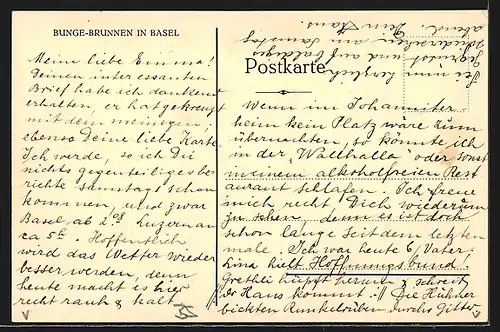 BUNGE-BRUNNEN IN BASEL
Meine liebe Emma!
Deinen interessanten
Brief habe ich dankend
erhalten, er hat gekreuzt
mit dem meinigen,
ebenso Deine liebe Karte.
Ich werde, so ich Dir
nichts gegenteiliges be-
richte samstag schon
kommen, und zwar
Basel ab 2 Luzern an
ca 5 Hoffentlich
wird das Wetter wieder
besser werden, denn
heute macht es hier
recht rauh & kalt.
Postkarte
Wenn im Johanniter-
heim kein Platz wäre zum
übernachten, so könnte ich
in der "Wallhalla" oder sonst
in einem alkoholfreien Rest
aurant schlafen. Ich freue
mich recht Dich wiederum
zu sehen, denn es ist doch
schon lange seit dem letzten
male. Ich war heute b/ Vater.
Lina hielt Hoffnungsbund!
Grethli hüpft herum & schreit
der Hans kommt! Die Hühner
bickten Runkelrüben durchs Gitter
Sei nun herzlich
gegrüsst und auf baldiges
Wiedersehen am Samstag
abend. Dein Hans.